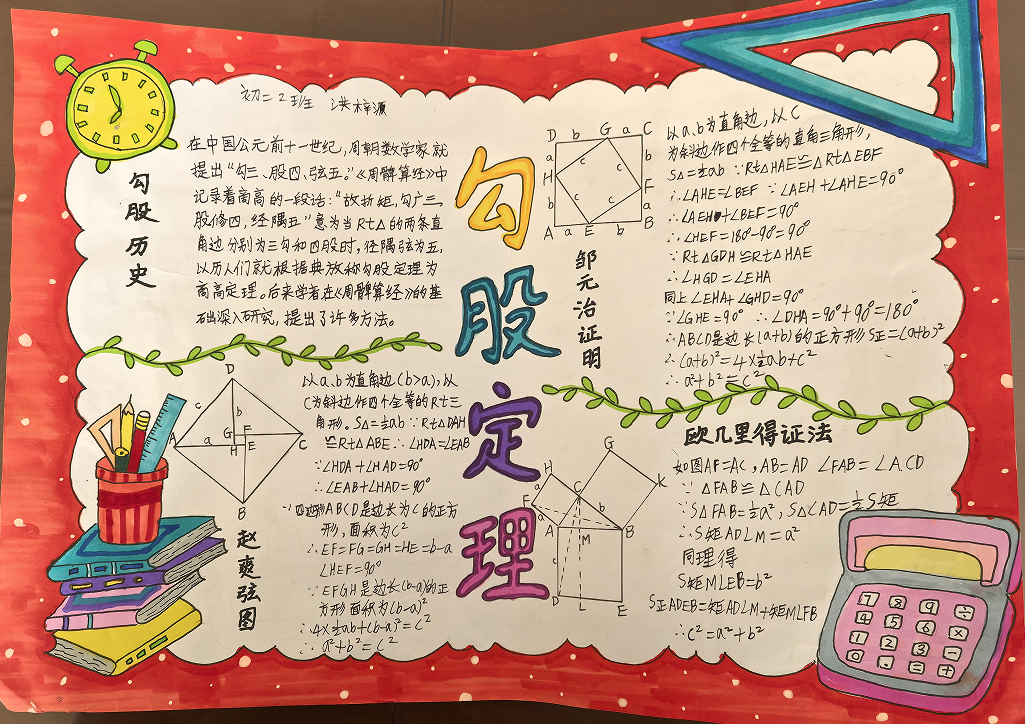 初二2班 洪梓源
勾股历史
在中国公元前十一世纪,周朝数学家就
提出“勾三、股四、弦五。”《周髀算经》中
记录着商高的一段话:“故折矩,勾广三,
股修四,经隅五”意为当Rt△的两条直
角边分别为三勾和四股时,径隅弦为五,
以历人们就根据典故称勾股定理为
商高定理。后来学者在《周髀算经》的基
础深入研究,提出了许多方法。
勾股定理
邹元治证明
D b G a C
a b
H c c F
b c c a
A a E b B
以a、b为直角边,以C
为斜边作四个全等的直角三角形,
S△=½ab ∵Rt△HAE≌△Rt△EBF
∴∠AHE=∠BEF ∵∠AEH+∠AHE=90°
∴∠AEH+∠BEF=90°
∴∠HEF=180°-90°=90°
∵Rt△GDH≌Rt△HAE
∴∠HGD=∠EHA
同上∠EHA+∠GHD=90°
∵∠GHE=90° ∴∠DHA=90°+90°=180°
∴ABCD是边长(a+b)的正方形S正=(a+b)²
∴(a+b)²=4×½ab+c²
∴a²+b²=c²
赵爽弦图
D
c b
A a G F C
H E
B
以a、b为直角边(b>a),以
C为斜边作四个全等的Rt三
角形。S△=½ab ∵Rt△DAH
≌Rt△ABE∴∠HDA=∠EAB
∵∠HDA+∠HAD=90°
∴∠EAB+∠HAD=90°
∴四边形ABCD是边长为C的正方
形,面积为C²
∴EF=FG=GH=HE=b-a
∠HEF=90°
∵EFGH是边长(b-a)的正
方形面积为(b-a)²
∴4×½ab+(b-a)²=C²
∴a²+b²=C²
欧几里得证法
G
H K
a C
F b
a
A M B
c
D L E
如图AF=AC,AB=AD ∠FAB=∠ACD
∵△FAB≌△CAD
∵S△FAB=½a²,S△CAD=½S矩
∴S矩ADLM=a²
同理得
S矩MLEB=b²
S正ADEB=矩ADLM+矩MLFB
∴c²=a²+b²
7 8 9 ÷
4 5 6 ×
1 2 3 -
0 . = +